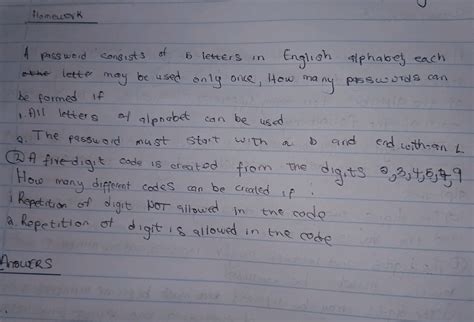 Homework
A password consists of 6 letters in English alphabets each
letter may be used only once, How many passwords can
be formed if
1, All letters of alphabet can be used
2. The password must start with a D and end with an L
② A five digit code is created from the digits 2,3,4,5,7,9
How many different codes can be created if :
1. Repetition of digit NOT allowed in the code
2. Repetition of digit is allowed in the code
Answers